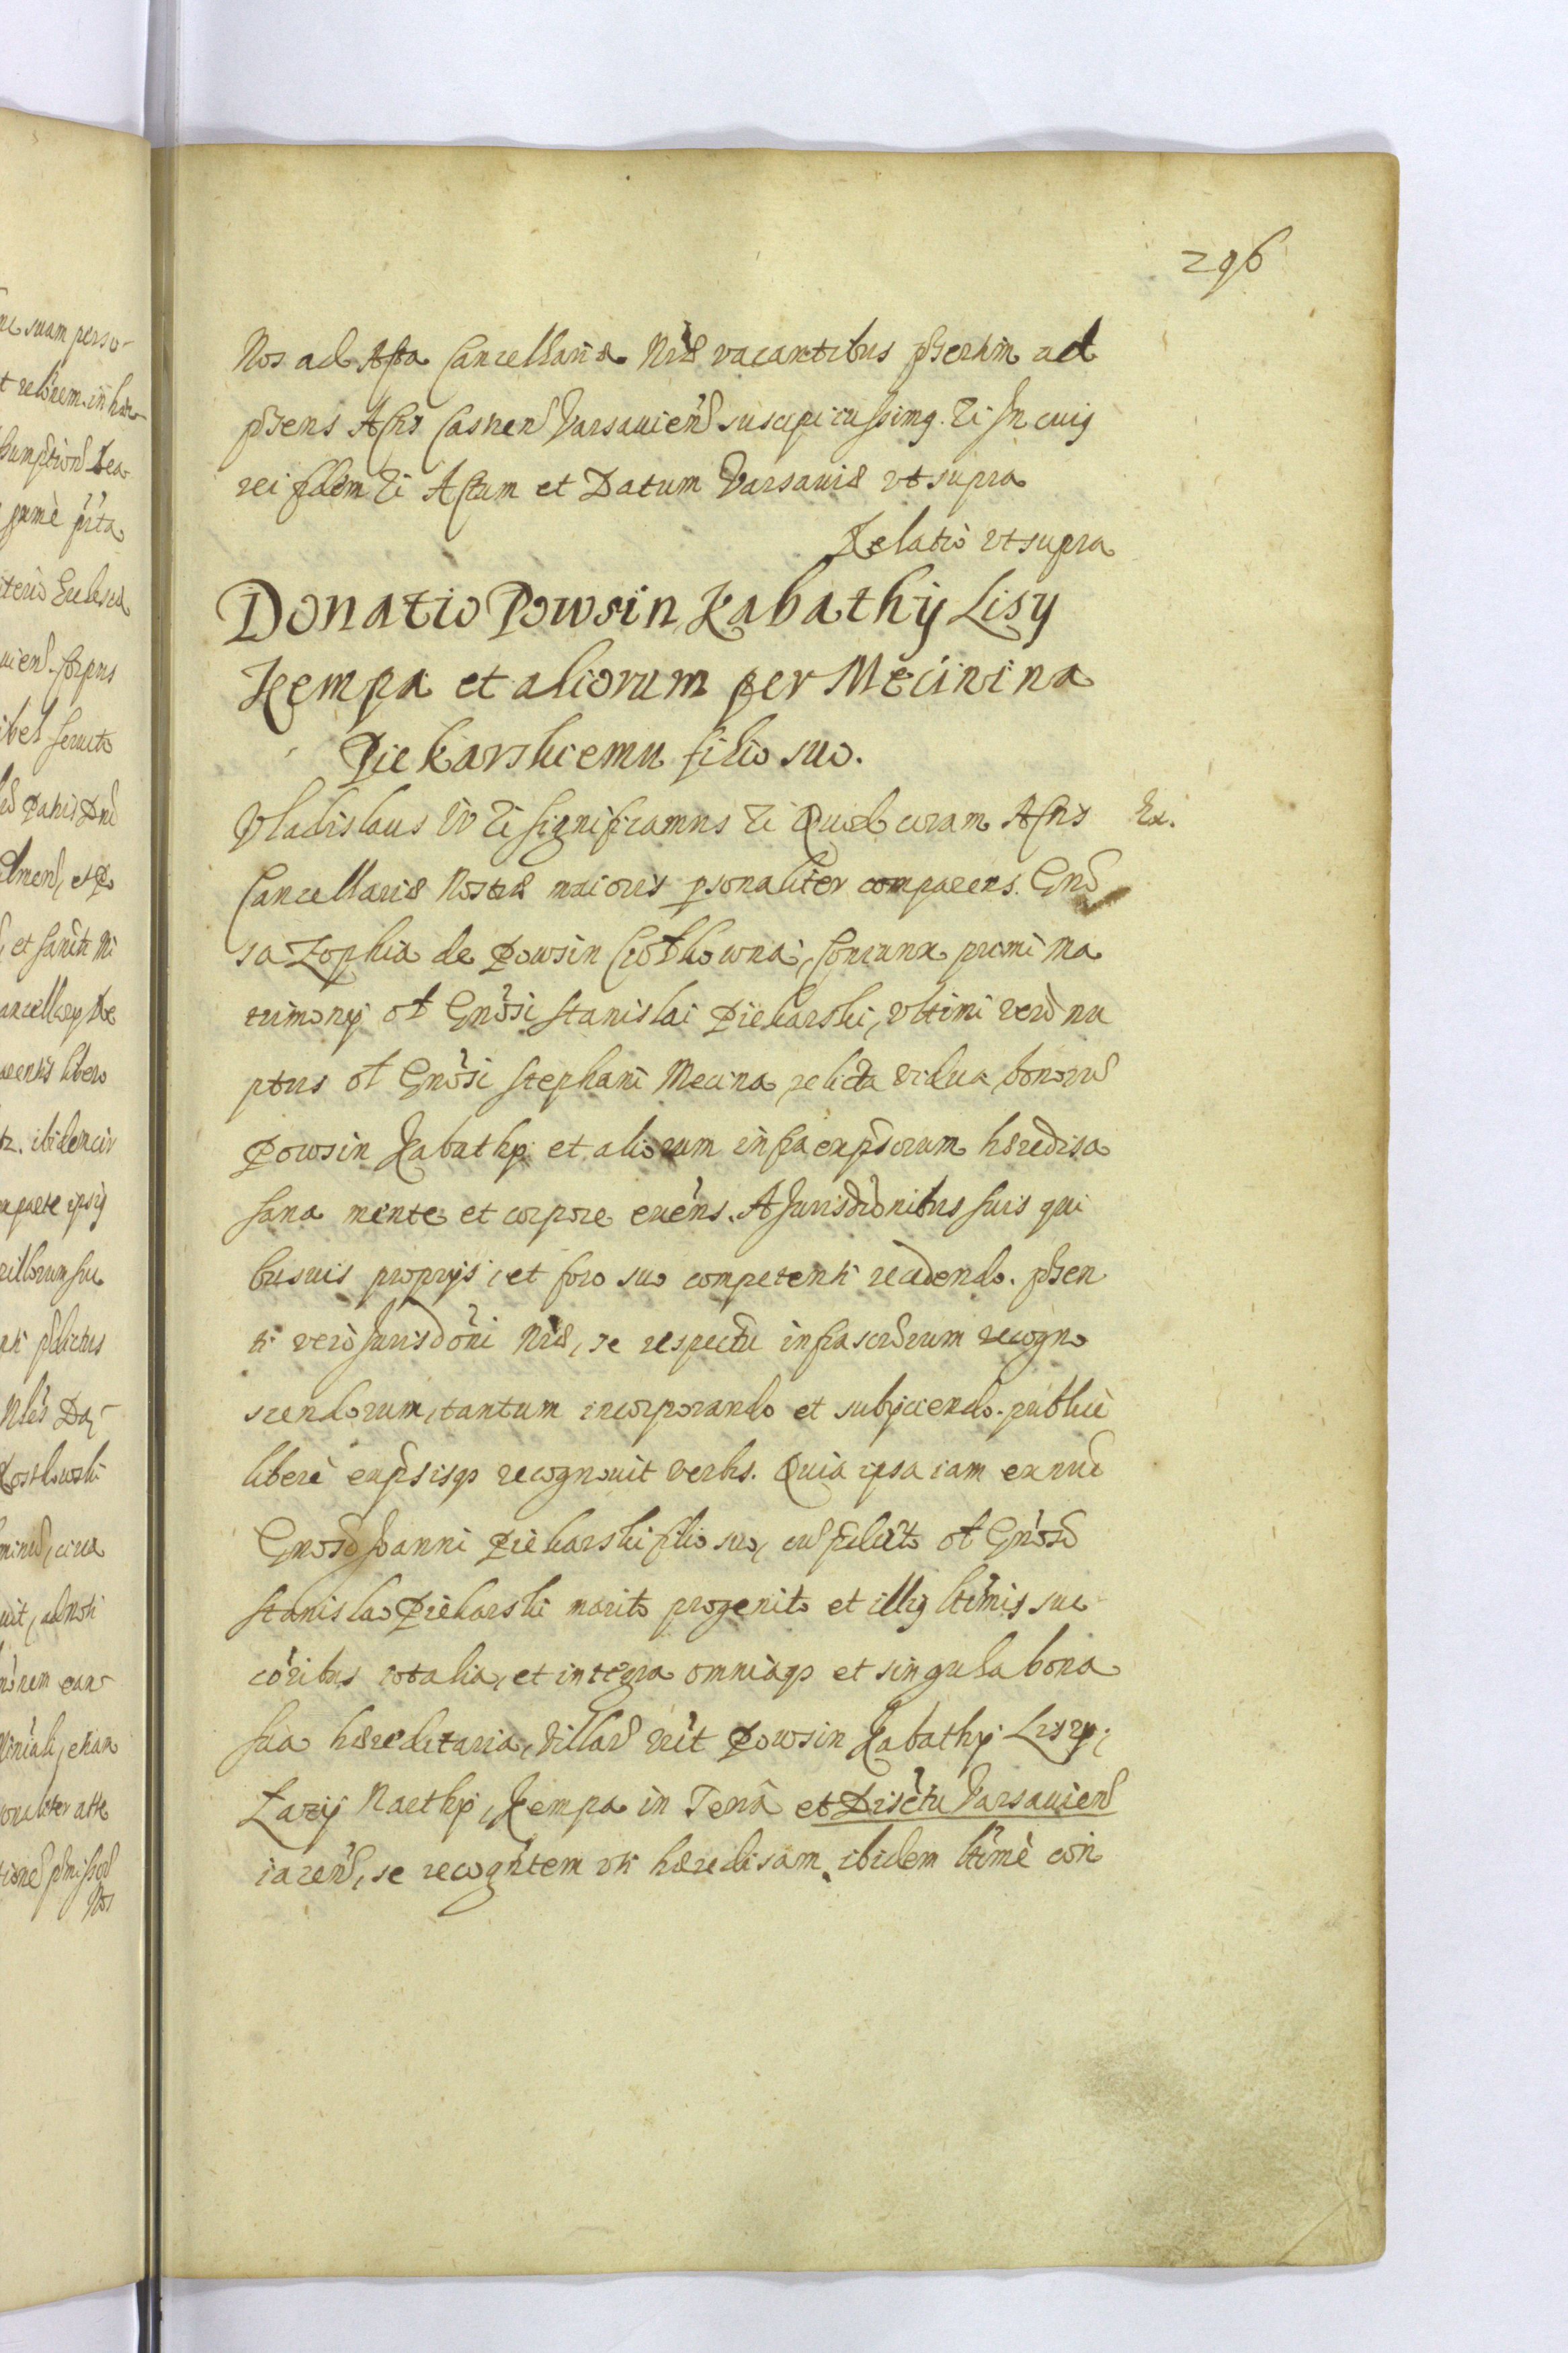 296
Nos ad Acta Cancellariæ Nræ vacantibus psertim ad
psens Actis Castren Varsavien suscepicussimq. Ti In cuiq
rei fidem Ti Actum et Datum Varsaviæ vt supra
Relatio vt supra
Donatio Powsin Kabathÿ Lisy
Kempa et aliorum per Mecinina
Piekarskiemu filio suo.
Vladislaus IV Ti significamus Ti Quod coram Actis Ex.
Cancellariæ Nostræ maioris psonaliter comparens. Gnd
sa Zophia de Powsin Ciolkowna, Coniunx primi ma
trimonij ol Gnosi Stanislai Piekarski, vltimi vero nu
ptus ol Gnosi Stephani Mecina relicta vidua, bonoru
Powsin Kabathy et aliorum infra expssorum hæredisa
sana mente et corpore exens. A Jurisdionibus suis qui
busuis proprijs, et foro suo competenti recedendo. psen
ti vero Jurisdoni Nræ, se respectu infrascrorum recogn
scendorum, tantum incorporando et subijciendo. publicè
liberè expssisq recognouit verbis. Quia ipsa iam ex nuc
Gnoso Joanni Piekarski filio suo, cu pdicto ol Gnoso
Stanislao Piekarski marito progenito et illiq ltimis suc
coribus totalia, et integra omniaq et singula bona
sua hæreditaria, villas vct Powsin Kabathy Lisy,
Lazÿ Narthy, Kempa in Terrâ et Drisctu Varsavien
iacen, se recognitem vti hæredisam ibidem ltimè con